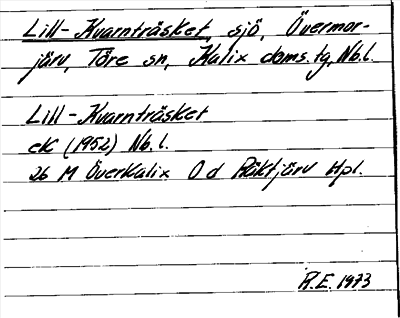 Lill-Kvarnträsket, sjö, Övermor-
järv, Töre sn, Kalix doms.tg, Nb.l.
Lill-Kvarnträsket
ek (1952) Nb.l.
26 M Överkalix O d Räktjärv Hpl.
R.E. 1973